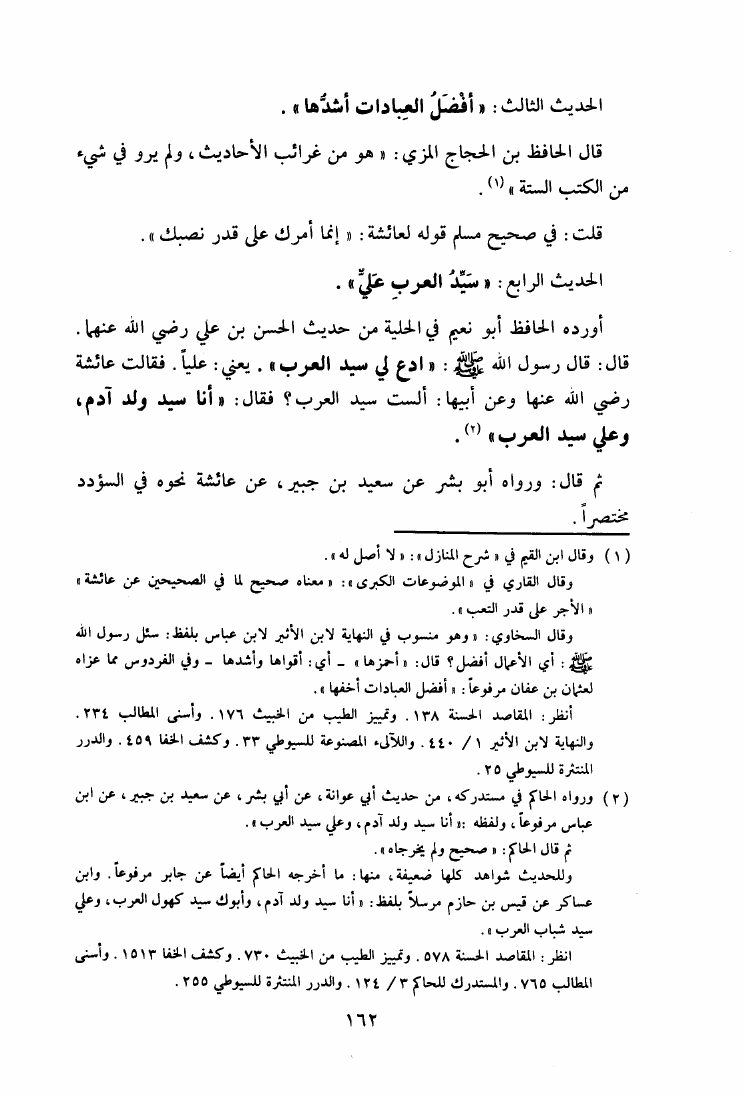 الحديث الثالث: « أَفْضَلُ العِبادات أشدُّها » .
قال الحافظ بن الحجاج المزي: « هو من غرائب الأحاديث، ولم يرو في شيء
من الكتب الستة »(١) .
قلت: في صحيح مسلم قوله لعائشة: « إنما أمرك على قدر نصبك ».
الحديث الرابع: « سَيِّدُ العربِ عَلَيٌّ » .
أورده الحافظ أبو نعيم في الحلية من حديث الحسن بن علي رضي الله عنهما.
قال: قال رسول الله ﷺ : « ادع لي سيد العرب » . يعني: علياً. فقالت عائشة
رضي الله عنها وعن أبيها: ألست سيد العرب؟ فقال: « أنا سيد ولد آدم،
وعلي سيد العرب » (٢) .
ثم قال: ورواه أبو بشر عن سعيد بن جبير، عن عائشة نحوه في السؤدد
مختصراً .
(١) وقال ابن القيم في « شرح المنازل »: « لا أصل له ».
وقال القاري في « الموضوعات الكبرى »: « معناه صحيح لما في الصحيحين عن عائشة »
« الأجر على قدر التعب ».
وقال السخاوي: « وهو منسوب في النهاية لابن الأثير لابن عباس بلفظ: سئل رسول الله
ﷺ : أي الأعمال أفضل؟ قال: « أحمزها » ـ أي: أقواها وأشدها ـ وفي الفردوس مما عزاه
لعثمان بن عفان مرفوعاً: « أفضل العبادات أخفها ».
أنظر: المقاصد الحسنة ١٣٨. وتمييز الطيب من الخبيث ١٧٦. وأسنى المطالب ٢٣٤.
والنهاية لابن الأثير ١ / ٤٤٠. واللآلىء المصنوعة للسيوطي ٣٣. وكشف الخفا ٤٥٩. والدرر
المنتثرة للسيوطي ٢٥.
(٢) ورواه الحاكم في مستدركه، من حديث أبي عوانة، عن أبي بشر، عن سعيد بن جبير، عن ابن
عباس مرفوعاً، ولفظه :« أنا سيد ولد آدم، وعلي سيد العرب ».
ثم قال الحاكم: « صحيح ولم يخرجاه ».
وللحديث شواهد كلها ضعيفة، منها: ما أخرجه الحاكم أيضاً عن جابر مرفوعاً. وابن
عساكر عن قيس بن حازم مرسلاً بلفظ: « أنا سيد ولد آدم، وأبوك سيد كهول العرب، وعلي
سيد شباب العرب ».
انظر: المقاصد الحسنة ٥٧٨. وتمييز الطيب من الخبيث ٧٣٠. وكشف الخفا ١٥١٣. وأسنى
المطالب ٧٦٥. والمستدرك للحاكم ٣ / ١٢٤. والدرر المنتثرة للسيوطي ٢٥٥.
١٦٢